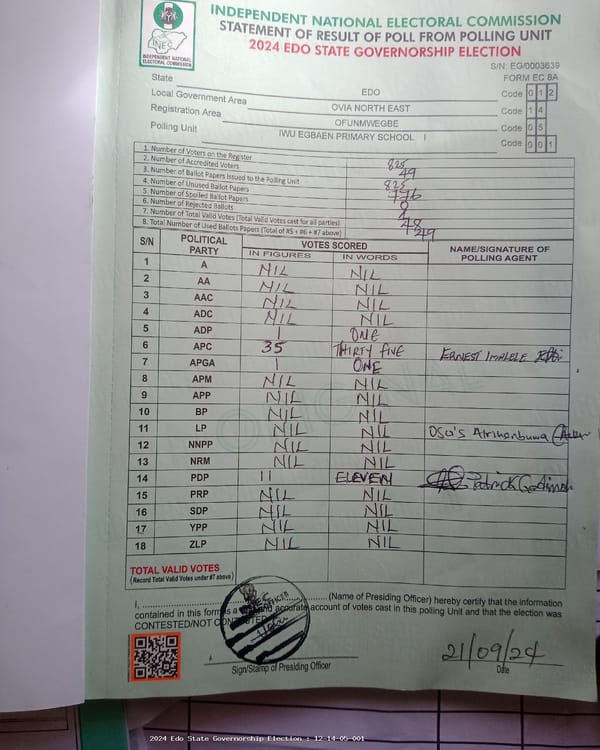 INDEPENDENT NATIONAL ELECTORAL COMMISSION
STATEMENT OF RESULT OF POLL FROM POLLING UNIT
2024 EDO STATE GOVERNORSHIP ELECTION
INEC
INDEPENDENT NATIONAL ELECTORAL COMMISSION
S/N: EG/0003639
FORM EC 8A
State EDO Code 0 1 2
Local Government Area OVIA NORTH EAST Code 1 4
Registration Area OFUNMWEGBE Code 0 5
Polling Unit IWU EGBAEN PRIMARY SCHOOL I Code 0 0 1
1. Number of Voters on the Register 825
2. Number of Accredited Voters 49
3. Number of Ballot Papers Issued to the Polling Unit 825
4. Number of Unused Ballot Papers 776
5. Number of Spoiled Ballot Papers 0
6. Number of Rejected Ballots 1
7. Number of Total Valid Votes (Total Valid Votes cast for all parties) 48
8. Total Number of Used Ballots Papers (Total of #5 + #6 + #7 above) 49
S/N POLITICAL PARTY VOTES SCORED NAME/SIGNATURE OF POLLING AGENT
IN FIGURES IN WORDS
1 A NIL NIL
2 AA NIL NIL
3 AAC NIL NIL
4 ADC NIL NIL
5 ADP 1 ONE
6 APC 35 THIRTY FIVE ERNEST
7 APGA 1 ONE
8 APM NIL NIL
9 APP NIL NIL
10 BP NIL NIL
11 LP NIL NIL
12 NNPP NIL NIL
13 NRM NIL NIL
14 PDP 11 ELEVEN Patrick
15 PRP NIL NIL
16 SDP NIL NIL
17 YPP NIL NIL
18 ZLP NIL NIL
TOTAL VALID VOTES
(Record Total Valid Votes under #7 above)
I, (Name of Presiding Officer) hereby certify that the information
contained in this form is a accurate account of votes cast in this polling Unit and that the election was
CONTESTED/NOT
INEC
Sign/Stamp of Presiding Officer
21/09/24
Date
2024 Edo State Governorship Election : 12-14-05-001